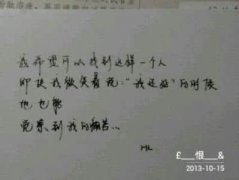 我希望可以找到这样一个人
即使我微笑着说：“我还好”的时候
他也能
觉察到我的痛苦...
ML
£___恨___&
2013-10-15